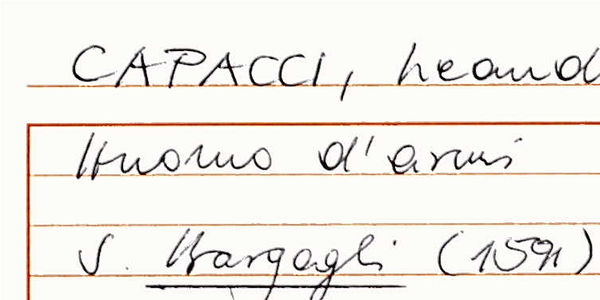 CAPACCI, Leand
Huomo d'armi
S. Bargagli (1591)